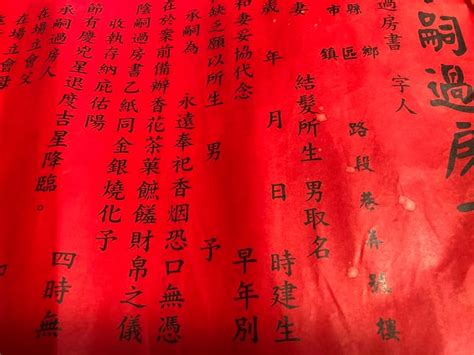 嗣過房
過房書 字人
縣市 鄉鎮區 路段巷弄號樓
妻 結髮所生男取名
歲 年 月 日 時建生
和妻妥協代念 早年別
缺之願以所生 男 予
承嗣為 永遠奉祀香烟恐口無憑
在於案前備辦香花茶菓饈財帛之儀
陰嗣過房書乙紙同金銀燒化予
收執存納庇佑陽 四時無
節有慶兇星退度吉星降臨。
承嗣過房書
在場立會父
在場立會母